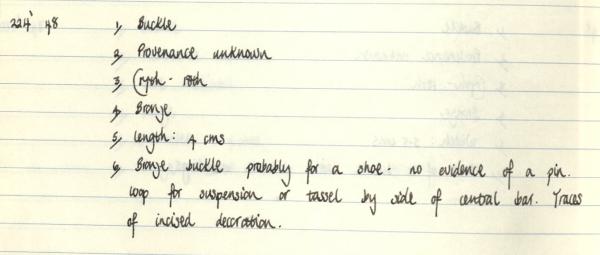 224' 48 1, Buckle
2, Provenance unknown
3, C17th - 18th
4, Bronze
5, Length: 4 cms
6, Bronze buckle probably for a shoe - no evidence of a pin.
Loop for suspension or tassel by side of central bar. Traces
of incised decoration.